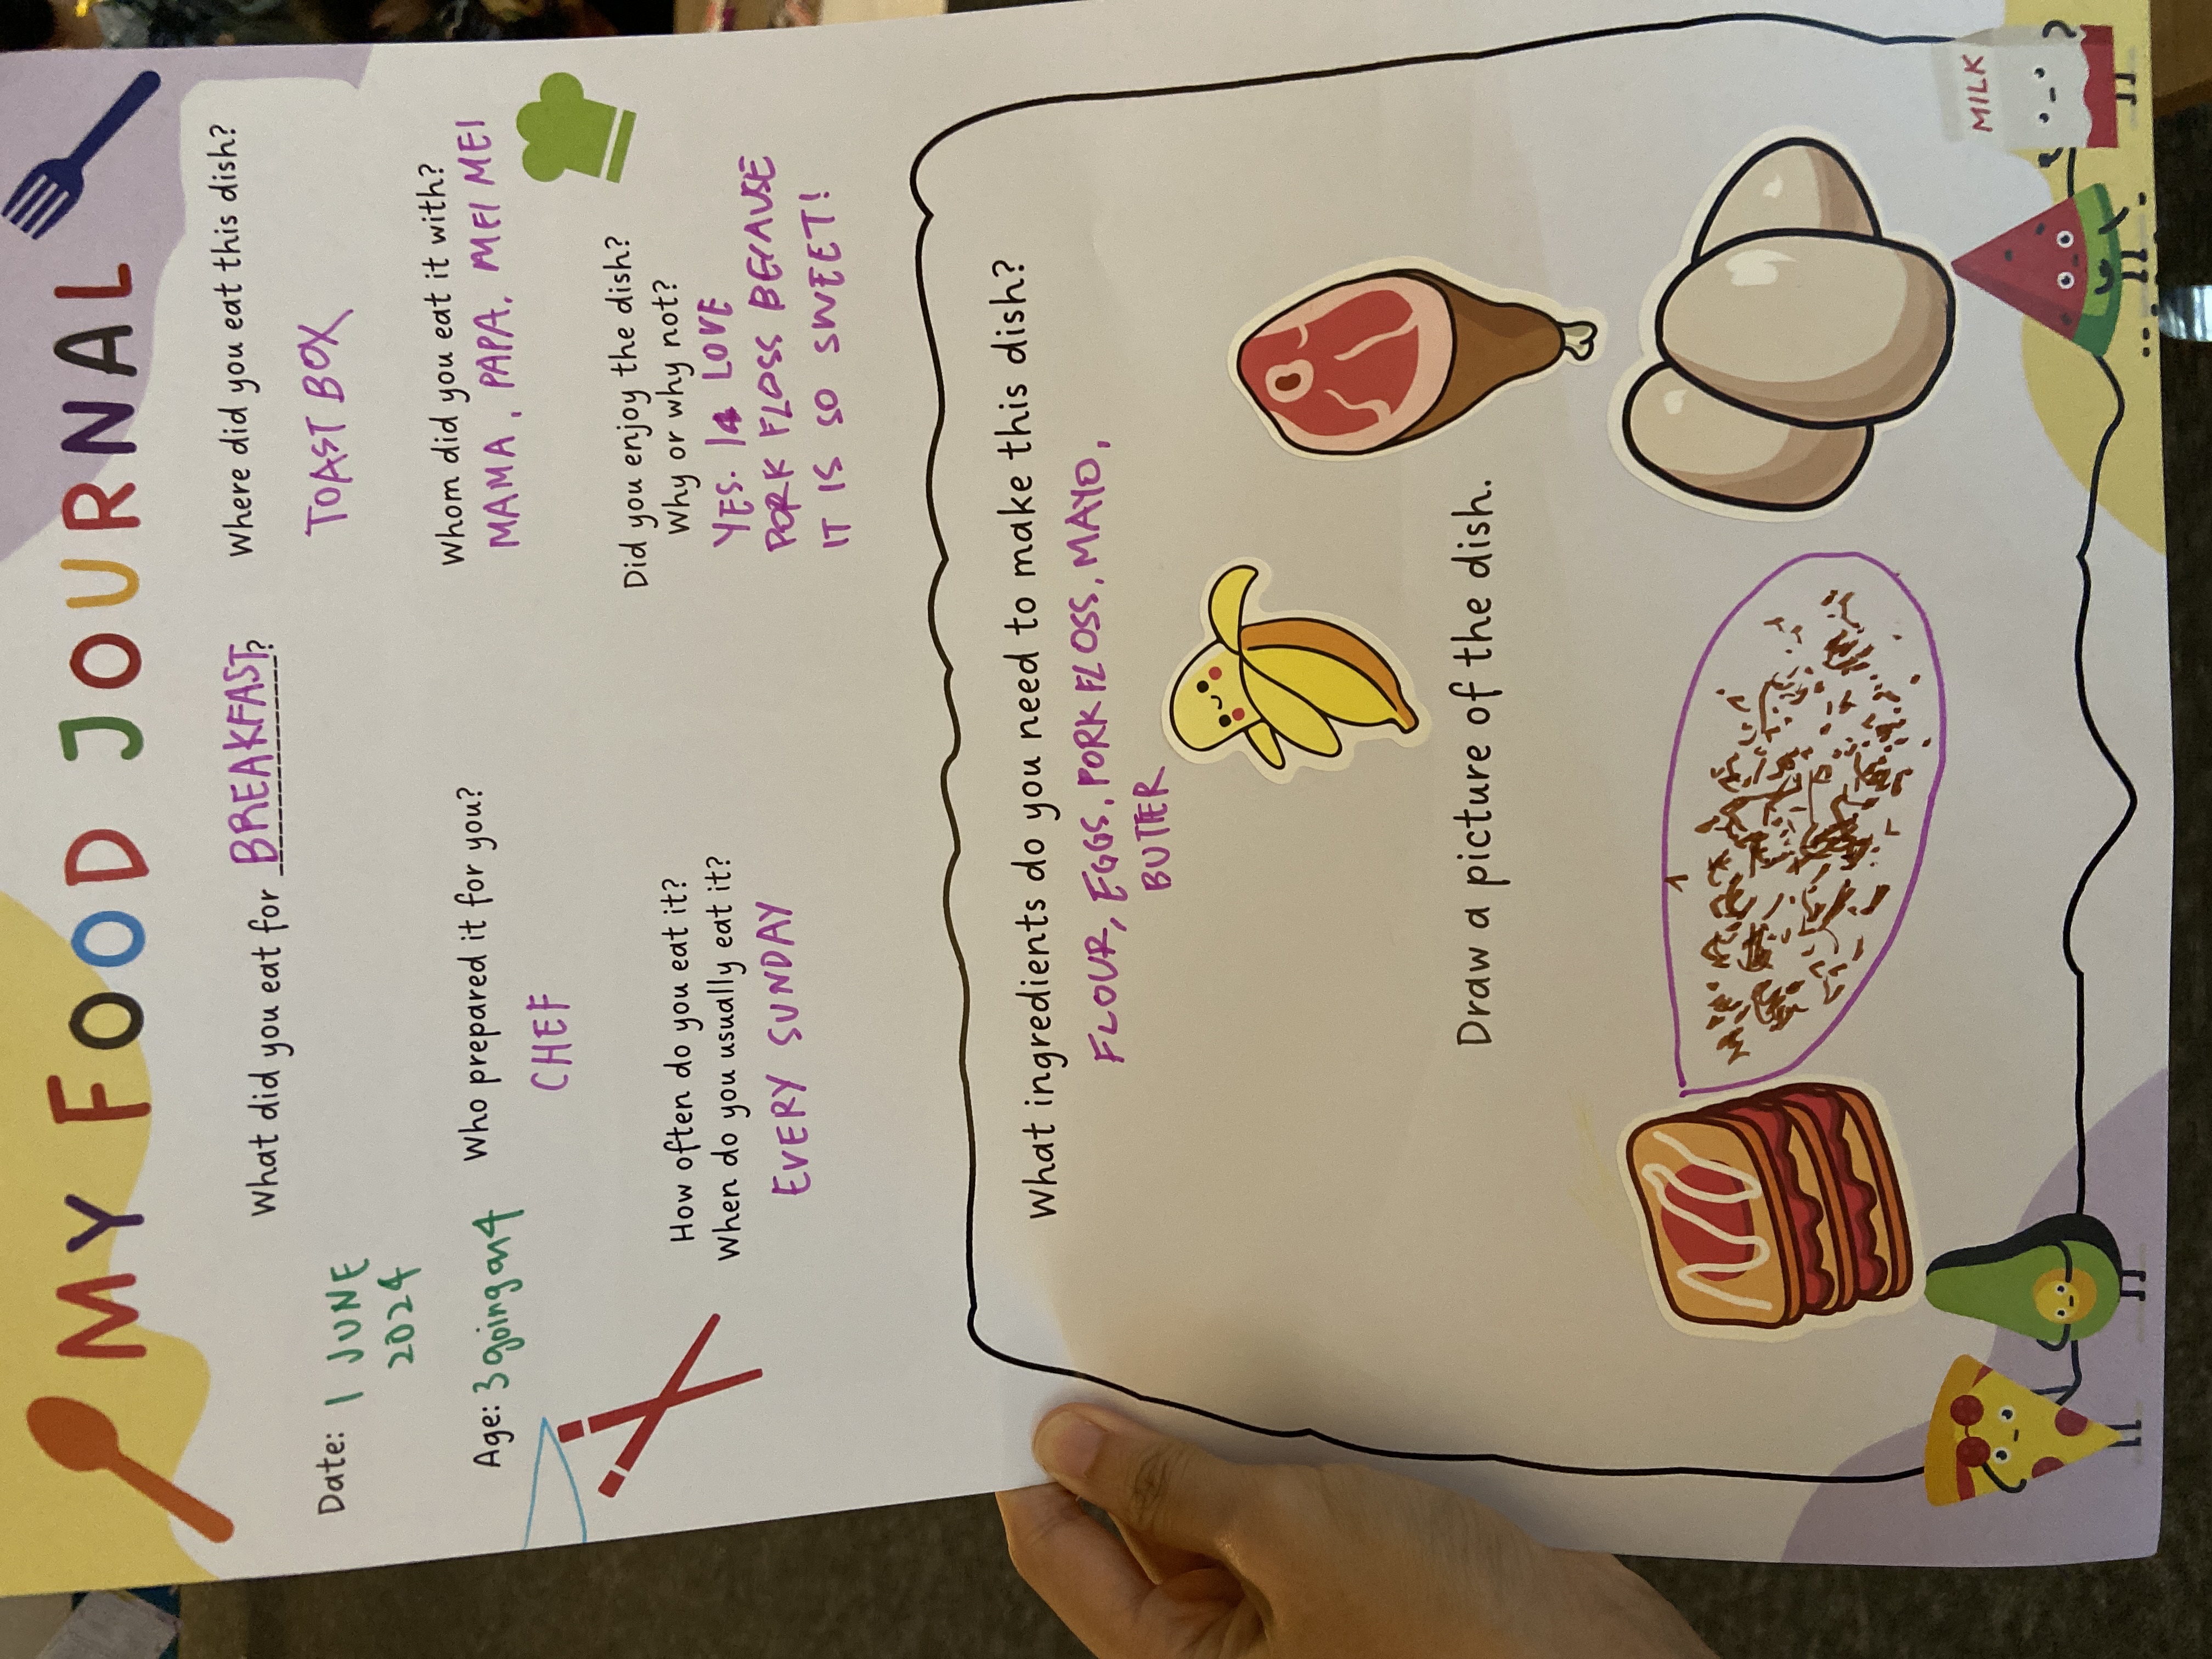 MY FOOD JOURNAL
Date: 1 JUNE
2024
Age: 3 going on 4
What did you eat for BREAKFAST?
Where did you eat this dish?
TOAST BOX
Who prepared it for you?
CHEF
Whom did you eat it with?
MAMA, PAPA, MEI MEI
How often do you eat it?
When do you usually eat it?
EVERY SUNDAY
Did you enjoy the dish?
Why or why not?
YES. I LOVE
PORK FLOSS BECAUSE
IT IS SO SWEET!
What ingredients do you need to make this dish?
FLOUR, EGGS, PORK FLOSS, MAYO,
BUTTER
Draw a picture of the dish.
MILK